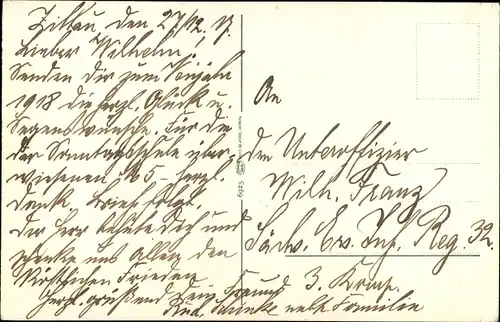 Zittau den 27/12. 17.
Lieber Wilhelm!
Senden Dir zum Neujahr
1918 die herzl. Glück u.
Segenswünsche. Für die
der Sonntagsschule über-
wiesenen M 5 - herzl.
Dank. Brief folgt.
Der Herr behüte Dich und
schenke uns Allen den
köstlichen Frieden
Herzl. grüßend Dein Freund
Rud. nebst Familie
An
den Unteroffizier
Wilh. Franz
Sächs. Ers. Inf. Reg. 32.
3. Komp.